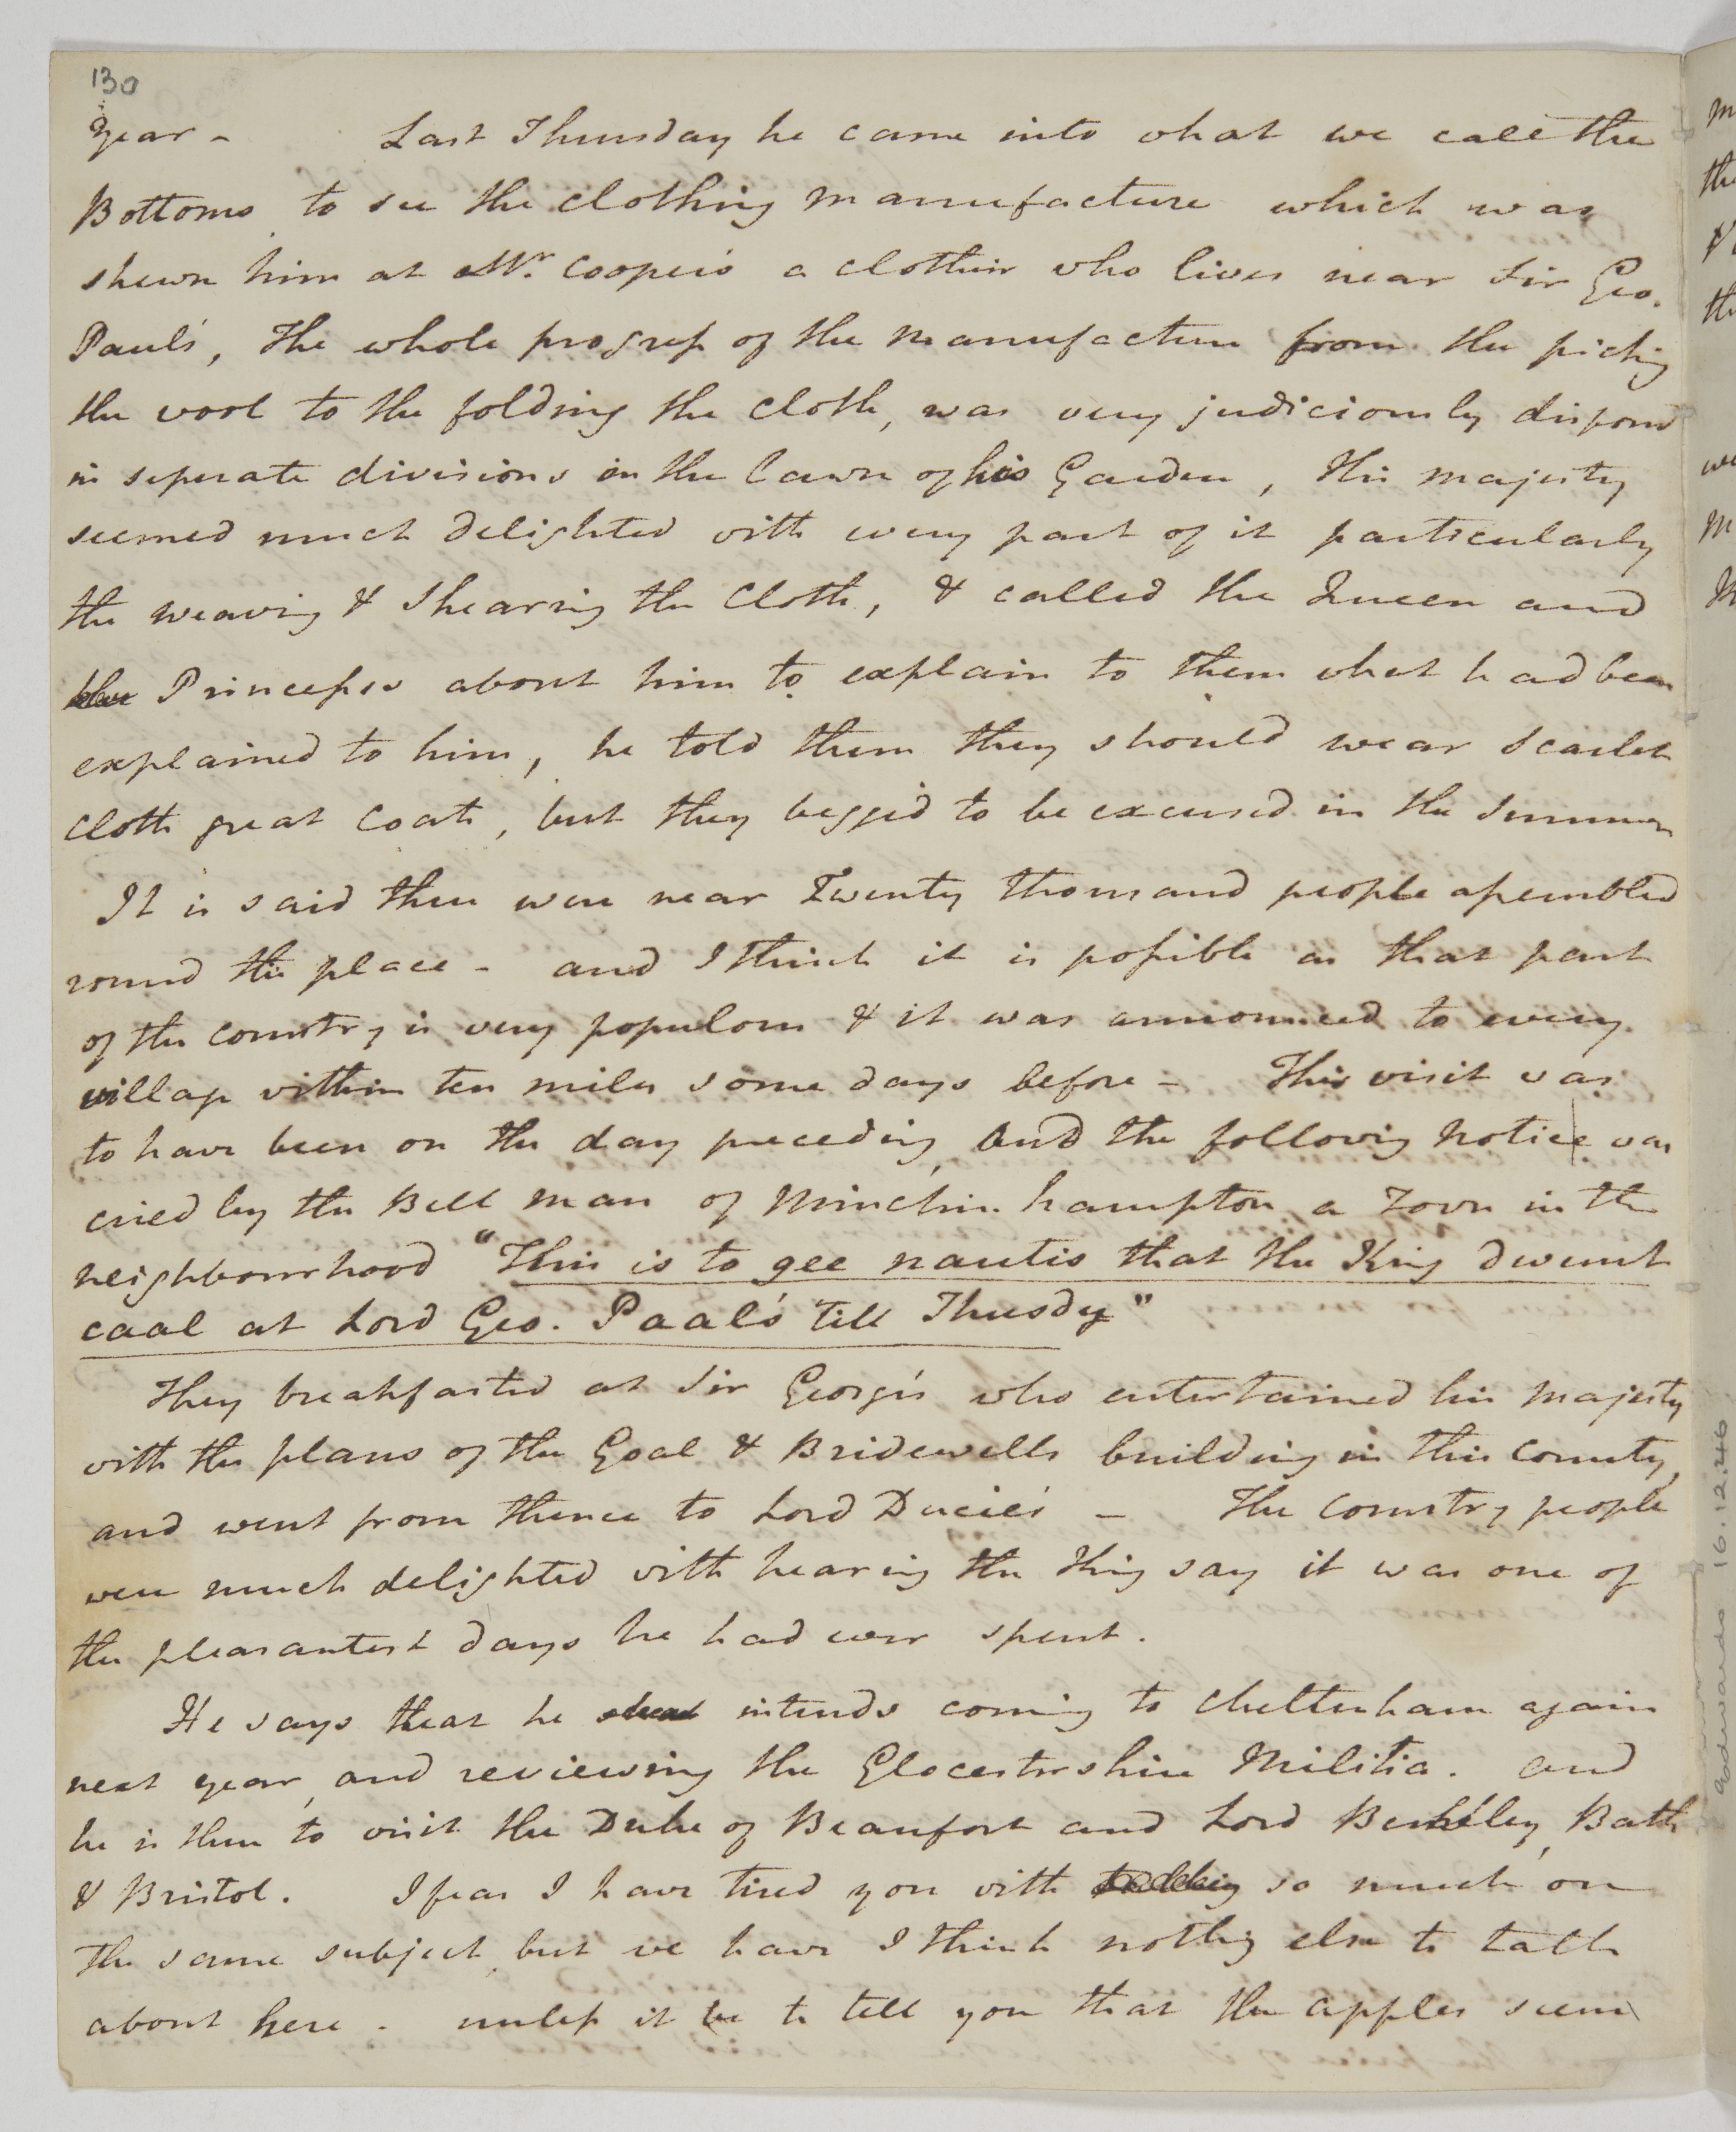 130
Year - Last Thursday he came into what we call the
Bottoms to see the clothing manufacture which was
shewn him at Mr. Cooper's a clothier who lives near Sir Geo.
Paul's, The whole progress of the manufacture from the picking
the wool to the folding the cloth, was very judiciously disposed
in seperate divisions in the lawn of his Garden, His majesty
seemed much delighted with every part of it particularly
the weaving & shearing the cloth, & called the Queen and
the Princesses about him to explain to them what had been
explained to him, he told them they should wear scarlet
cloth great coats, but they begged to be excused in the summer
It is said there were near Twenty thousand people assembled
round the place - and I think it is possible as that part
of the country is very populous & it was announced to every
village within ten miles some days before - This visit was
to have been on the day preceding, and the following notice was
cried by the Bell man of Minchin hampton a Town in the
neighbourhood "This is to gee nautis that the King dwunt
caal at Lord Geo. Paal's Till Thusdy"
They breakfasted at Sir George's who entertained his majesty
with the plans of the Goal & Bridewells building in this county,
and went from thence to Lord Ducie's - The country people
were much delighted with hearing the King say it was one of
the pleasantest days he had ever spent.
He says that he intends coming to Cheltenham again
next year, and reviewing the Glocestershire Militia. and
he is then to visit the Duke of Beaufort and Lord Berkeley, Bath
& Bristol. I fear I have tired you with so much on
the same subject, but we have I think nothing else to talk
about here - unless it be to tell you that the apples seem